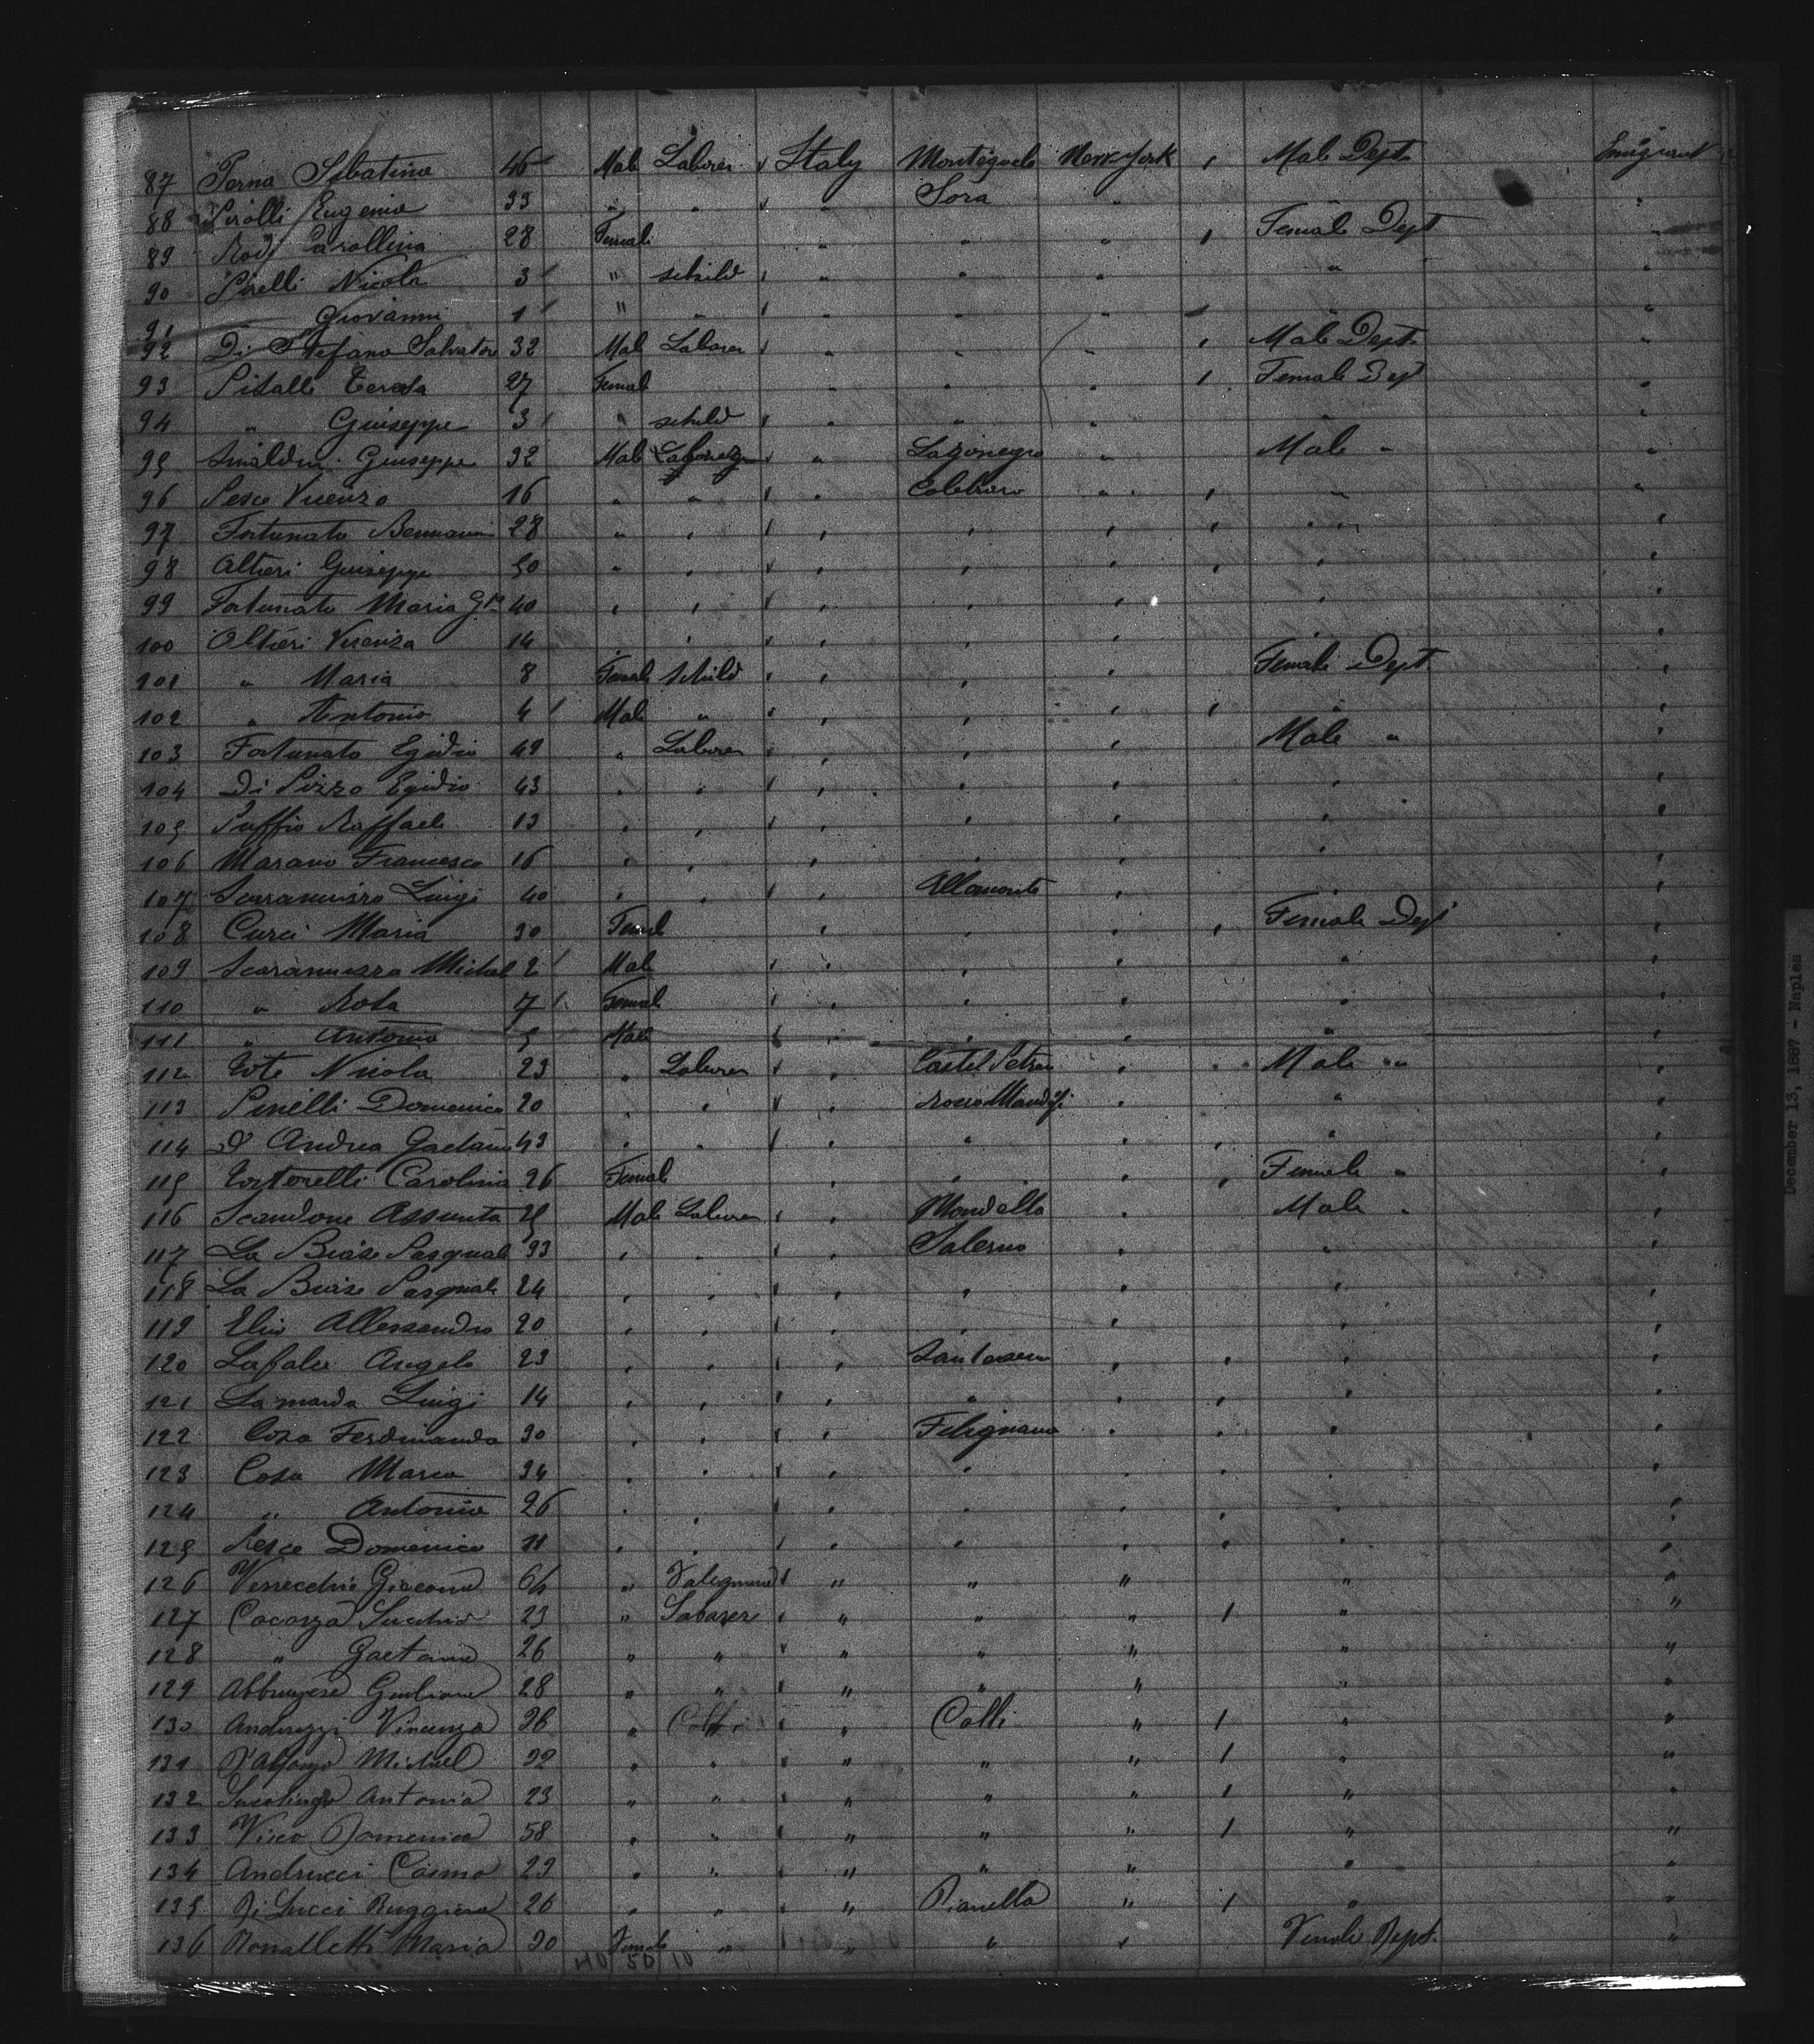 87 Perna Sabatino 46 Male Laborer Italy New York Male Dept. Emigrant
88 Pirolli Eugenio 33 " " " Sora "
89 Rodi Carollina 28 Female " " " Female Dept
90 Pirelli Nicola 3 " schild " " " "
91 Giovanni 1 " " " " "
92 Di Stefano Salvator 32 Male Laborer " " " Male Dept. "
93 Pitalli Teresa 27 Female " " " Female Dept "
94 " Giuseppe 3 " schild " " " " "
95 Giuseppe 32 Male Laborer " Lagonegro " Male " "
96 Pesce Vicenzo 16 " " " " " "
97 Fortunato 28 " " " " " " "
98 Altieri Giuseppe 50 " " " " " " "
99 Fortunato Maria 40 " " " " " " "
100 Altieri Vicenza 14 " " " " " " "
101 " Maria 8 Female schild " " " Female Dept "
102 " Antonio 4 Male " " " " " "
103 Fortunato Egidio 49 " Laborer " " " Male " "
104 Di Pizzo Egidio 43 " " " " " " "
105 Raffaele 13 " " " " " " "
106 Marano Francesco 16 " " " " " " "
107 Scaramuzzo Luigi 40 " " " Altomonte " " "
108 Curci Maria 30 Female " " " Female Dept "
109 Scaramuzza Michel 2 Male " " " " "
110 " Rosa 7 Female " " " " "
111 " Antonio 5 Male " " " " "
112 Tote Nicola 23 " Laborer " Castel Petroso " Male " "
113 Pinelli Domenico 20 " " " " " "
114 D'Andrea Gaetano 43 " " " " " " "
115 Tortorelli Carolina 26 Female " " " Female " "
116 Scandone Assunta 25 Male Laborer " Mondello " Male " "
117 La Biase Pasquale 33 " " " Salerno " " "
118 La Biase Pasquale 24 " " " " " " "
119 Elio Allessandro 20 " " " " " " "
120 Angelo 23 " " " " " "
121 Lamarda Luigi 14 " " " " " " "
122 Coza Ferdinando 30 " " " Filignano " " "
123 Coza Maria 34 " " " " " " "
124 " Antonio 26 " " " " " " "
125 Pesce Domenico 11 " " " " " " "
126 Verrecchia Giacomo 64 " " " " " "
127 Cocozza 23 " Laborer " " " " "
128 " Gaetano 26 " " " " " " "
129 Abbruzzese Giuliano 28 " " " " " " "
130 Andreozzi Vincenzo 26 " " Colli " " "
131 D'Alfonzo Michael 22 " " " " " " "
132 Antonio 23 " " " " " " "
133 Visco Domenico 58 " " " " " " "
134 Andreucci Cosmo 29 " " " " " " "
135 Di Lucci Ruggiero 26 " " " Pianella " " "
136 Donatletti Maria 20 Female " " " " Female Dept. "
December 13, 1887 - Naples